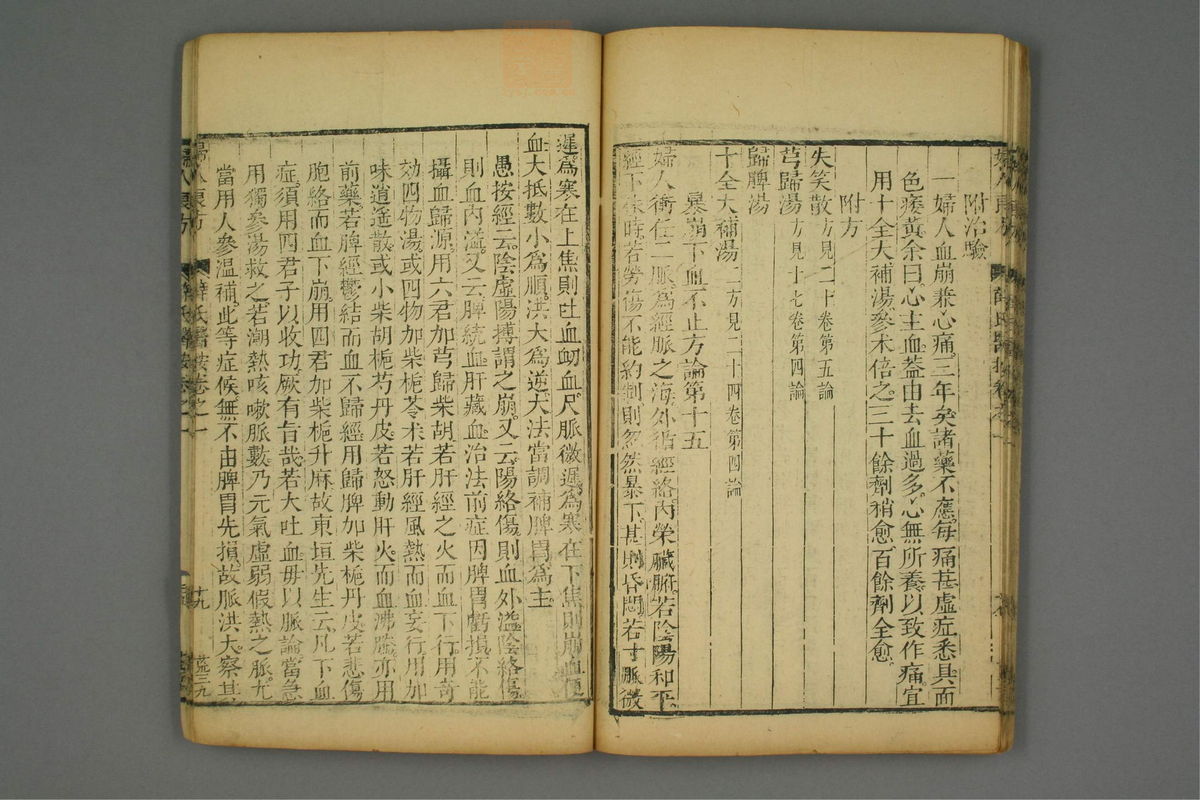 附治驗
一婦人血崩兼心痛三年矣諸藥不應每痛甚虛症悉具面
色痿黃余曰心主血蓋由去血過多心無所養以致作痛宜
用十全大補湯參朮倍之三十餘劑稍愈百餘劑全愈
附方
失笑散方見二十卷第五論
芎歸湯方見十七卷第四論
歸脾湯
十全大補湯二方見二十四卷第四論
暴崩下血不止方論第十五
婦人衝任二脈爲經脈之海外循經絡內榮臟腑若陰陽和平
經下依時若勞傷不能約制則忽然暴下甚則昏悶若寸脈微
遲爲寒在上焦則吐血衂血尺脈微遲爲寒在下焦則崩血便
血大抵數小爲順洪大爲逆大法當調補脾胃爲主
愚按經云陰虛陽搏謂之崩又云陽絡傷則血外溢陰絡傷
則血內溢又云脾統血肝藏血治法前症因脾胃虧損不能
攝血歸源用六君加芎歸柴胡若肝經之火而血下行用奇
效四物湯或四物加柴梔苓朮若肝經風熱而血妄行用加
味逍遙散或小柴胡梔芍丹皮若怒動肝火而血沸騰亦用
前藥若脾經鬱結而血不歸經用歸脾加柴梔丹皮若悲傷
胞絡而血下崩用四君加柴梔升麻故東垣先生云凡下血
症須用四君子以收功厥有旨哉若大吐血毋以脈論當急
用獨參湯救之若潮熱咳嗽脈數乃元氣虛弱假熱之脈尤
當用人參溫補此等症候無不由脾胃先損故脈洪大察其
婦人良方
薛氏醫按卷之一